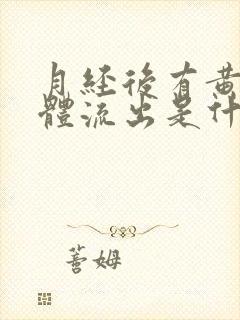 月經後有黃
體流出是什
薔姆